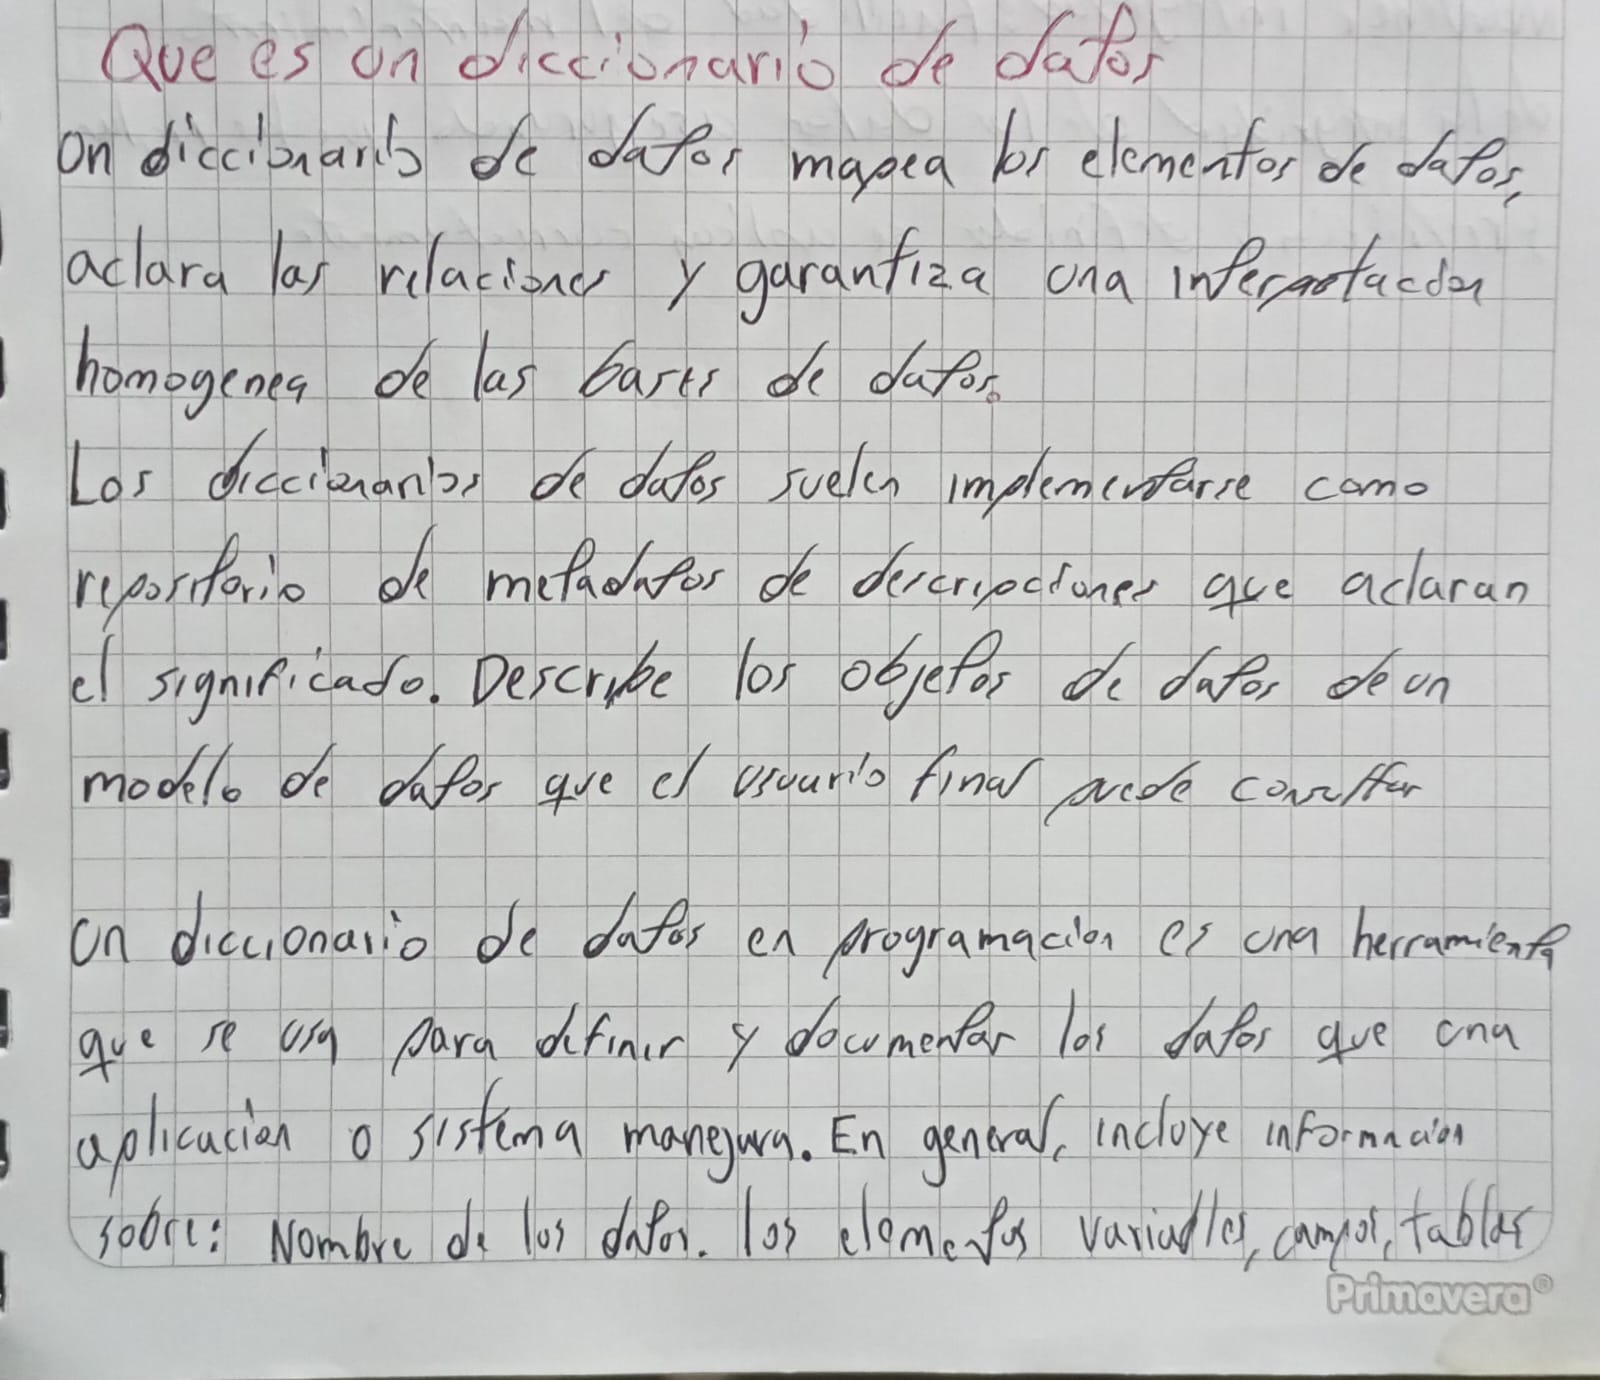 Que es un diccionario de datos
un diccionario de datos mapea los elementos de datos,
aclara las relaciones y garantiza una interpretacion
homogenea de las bases de datos.
Los diccionarios de datos suelen implementarse como
repositorio de metadatos de descripciones que aclaran
el significado. Describe los objetos de datos de un
modelo de datos que el usuario final puede consultar
un diccionario de datos en programación es una herramienta
que se usa para definir y documentar los datos que una
aplicación o sistema manejara. En general, incluye información
sobre: Nombre de los datos. los elementos variables, campos, tablas
Primavera®